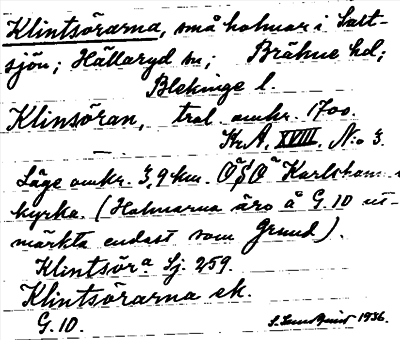 Klintsörarna, små holmar i Salt-
sjön; Hällaryd sn; Bräkne hd;
Blekinge l.
Klinsöran, trol. omkr. 1700.
Kr. A. XVIII. No 3.
Läge omkr. 3,9 km. OSO Karlshamns
kyrka. (Holmarna äro å G. 10 ut-
märkta endast som Grund).
Klintsöra Sj. 259.
Klintsörarna ek.
G. 10.
S. 1936.